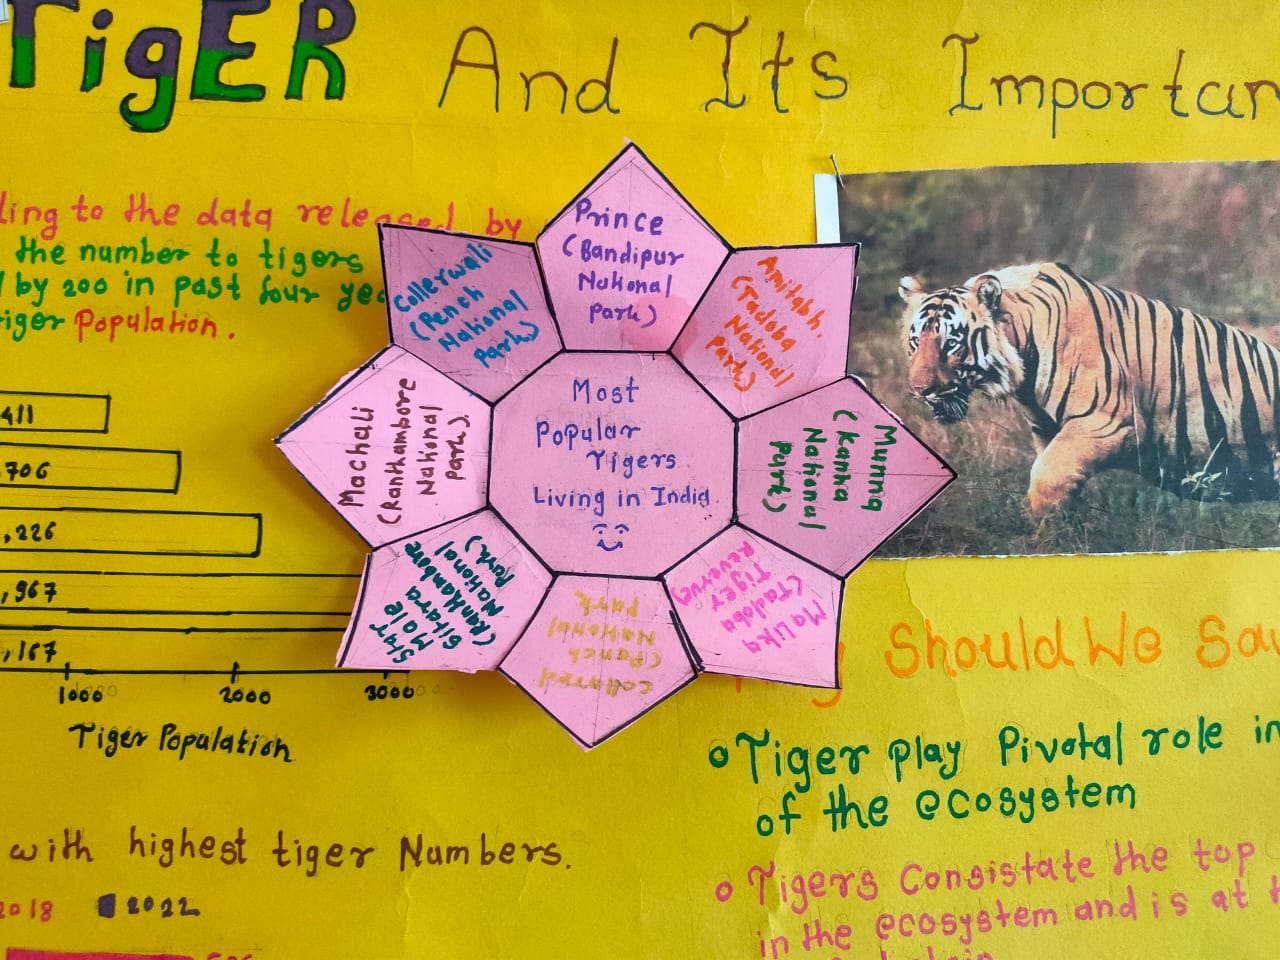 TigER And Its Importan
ding to the data released by
the number to tigers
by 200 in past four yea
tiger Population.
411
,706
,226
,967
,167
1000 2000 3000
Tiger Population
with highest tiger Numbers.
2018 2022
Most
Popular
Tigers
Living in India.
Prince
(Bandipur
National
Park)
Amitabh.
(Tadoba
National
Park)
Munna
(kanha
National
Park)
Malika
(Tadoba
Tiger
Reserve)
Collared
(Pench
National
Park
Star
Male
Sitara
(Ranthambore
National
Park)
Machali
(Ranthambore
National
Park).
Collerwali
(Pench
National
Park)
Should We Sav
Tiger play Pivotal role in
of the ecosystem
Tigers Consistate the top
in the ecosystem and is at